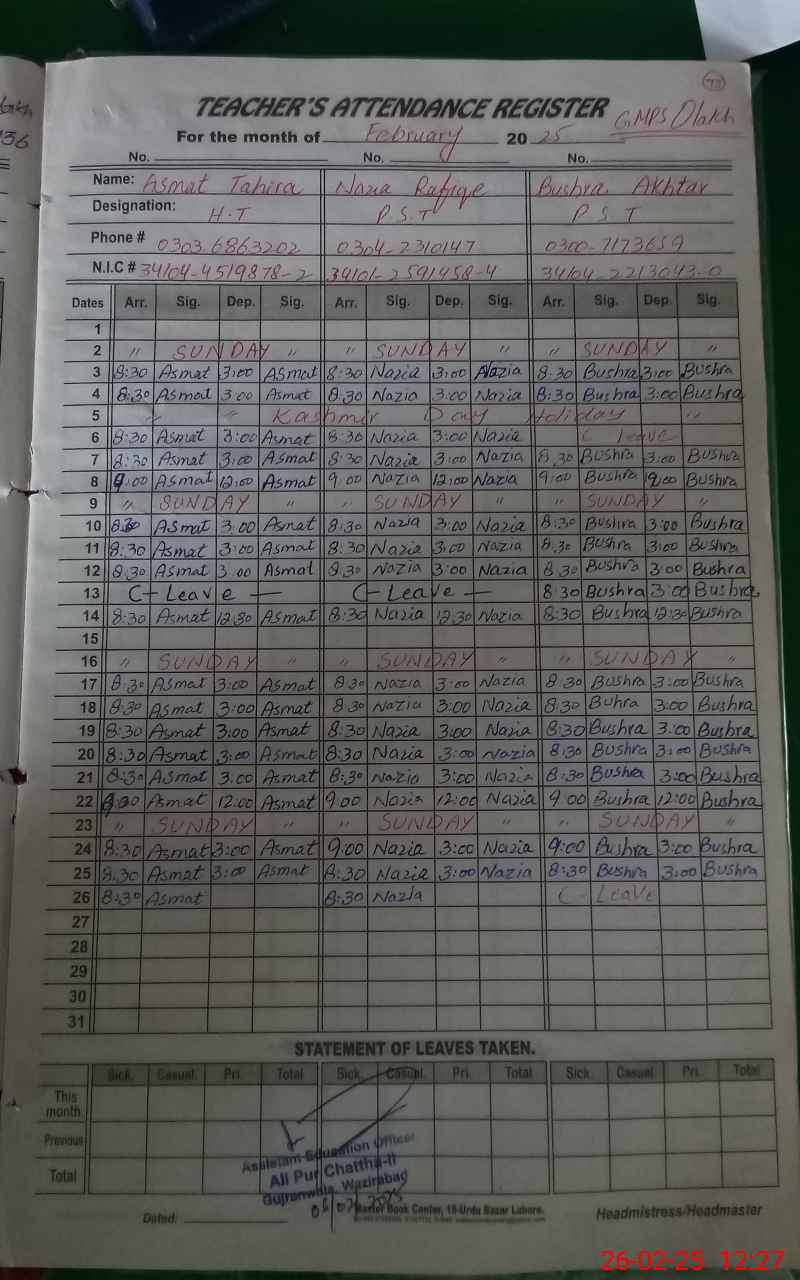 77
TEACHER'S ATTENDANCE REGISTER
For the month of February 2025 GMPS Olakh
No. No. No.
Name: Asmat Tahira Nazia Rafiqe Bushra Akhtar
Designation: H.T P.S.T P S T
Phone # 0303.6863202 0304-2310147 0300-7173659
N.I.C # 34104-4519878-2 34101-2591458-4 34104-2213043-0
Dates Arr. Sig. Dep. Sig. Arr. Sig. Dep. Sig. Arr. Sig. Dep. Sig.
1
2 " SUNDAY " " SUNDAY " " SUNDAY "
3 8:30 Asmat 3:00 Asmat 8:30 Nazia 3:00 Nazia 8:30 Bushra 3:00 Bushra
4 8:30 Asmat 3:00 Asmat 8:30 Nazia 3:00 Nazia 8:30 Bushra 3:00 Bushra
5 " " Kashmir Day Holiday "
6 8:30 Asmat 3:00 Asmat 8:30 Nazia 3:00 Nazia C leave
7 8:30 Asmat 3:00 Asmat 8:30 Nazia 3:00 Nazia 8.30 Bushra 3:00 Bushra
8 9:00 Asmat 12:00 Asmat 9.00 Nazia 12:00 Nazia 9:00 Bushra 12:00 Bushra
9 " SUNDAY " " SUNDAY " " SUNDAY "
10 8:30 Asmat 3.00 Asmat 8:30 Nazia 3:00 Nazia 8:30 Bushra 3:00 Bushra
11 8:30 Asmat 3:00 Asmat 8:30 Nazia 3:00 Nazia 8:30 Bushra 3:00 Bushra
12 8:30 Asmat 3:00 Asmat 8:30 Nazia 3:00 Nazia 8.30 Bushra 3:00 Bushra
13 C- Leave — C- Leave — 8:30 Bushra 3:00 Bushra
14 8:30 Asmat 12:30 Asmat 8:30 Nazia 12:30 Nazia 8:30 Bushra 12:30 Bushra
15
16 " SUNDAY " " SUNDAY " " SUNDAY "
17 8:30 Asmat 3:00 Asmat 8:30 Nazia 3:00 Nazia 8:30 Bushra 3:00 Bushra
18 8:30 Asmat 3:00 Asmat 8:30 Nazia 3:00 Nazia 8:30 Buhra 3:00 Bushra
19 8:30 Asmat 3:00 Asmat 8:30 Nazia 3:00 Nazia 8:30 Bushra 3:00 Bushra
20 8:30 Asmat 3:00 Asmat 8:30 Nazia 3:00 Nazia 8:30 Bushra 3:00 Bushra
21 8:30 Asmat 3.00 Asmat 8:30 Nazia 3:00 Nazia 8:30 Bushra 3:00 Bushra
22 9:00 Asmat 12:00 Asmat 9.00 Nazia 12:00 Nazia 9 00 Bushra 12:00 Bushra
23 " SUNDAY " " SUNDAY " " SUNDAY "
24 8:30 Asmat 3:00 Asmat 9:00 Nazia 3:00 Nazia 9:00 Bushra 3:00 Bushra
25 8:30 Asmat 3:00 Asmat 8:30 Nazia 3:00 Nazia 8:30 Bushra 3:00 Bushra
26 8:30 Asmat 8:30 Nazia C- Leave
27
28
29
30
31
STATEMENT OF LEAVES TAKEN.
Sick. Casual. Pri. Total Sick. Casual. Pri. Total Sick. Casual. Pri. Total
This month
Previous
Total
Assistant Education Officer
Ali Pur Chattha-II
Gujranwala, Wazirabad
Dated: Master Book Center, 18-Urdu Bazar Lahore. Headmistress/Headmaster
26-02-25 12:27